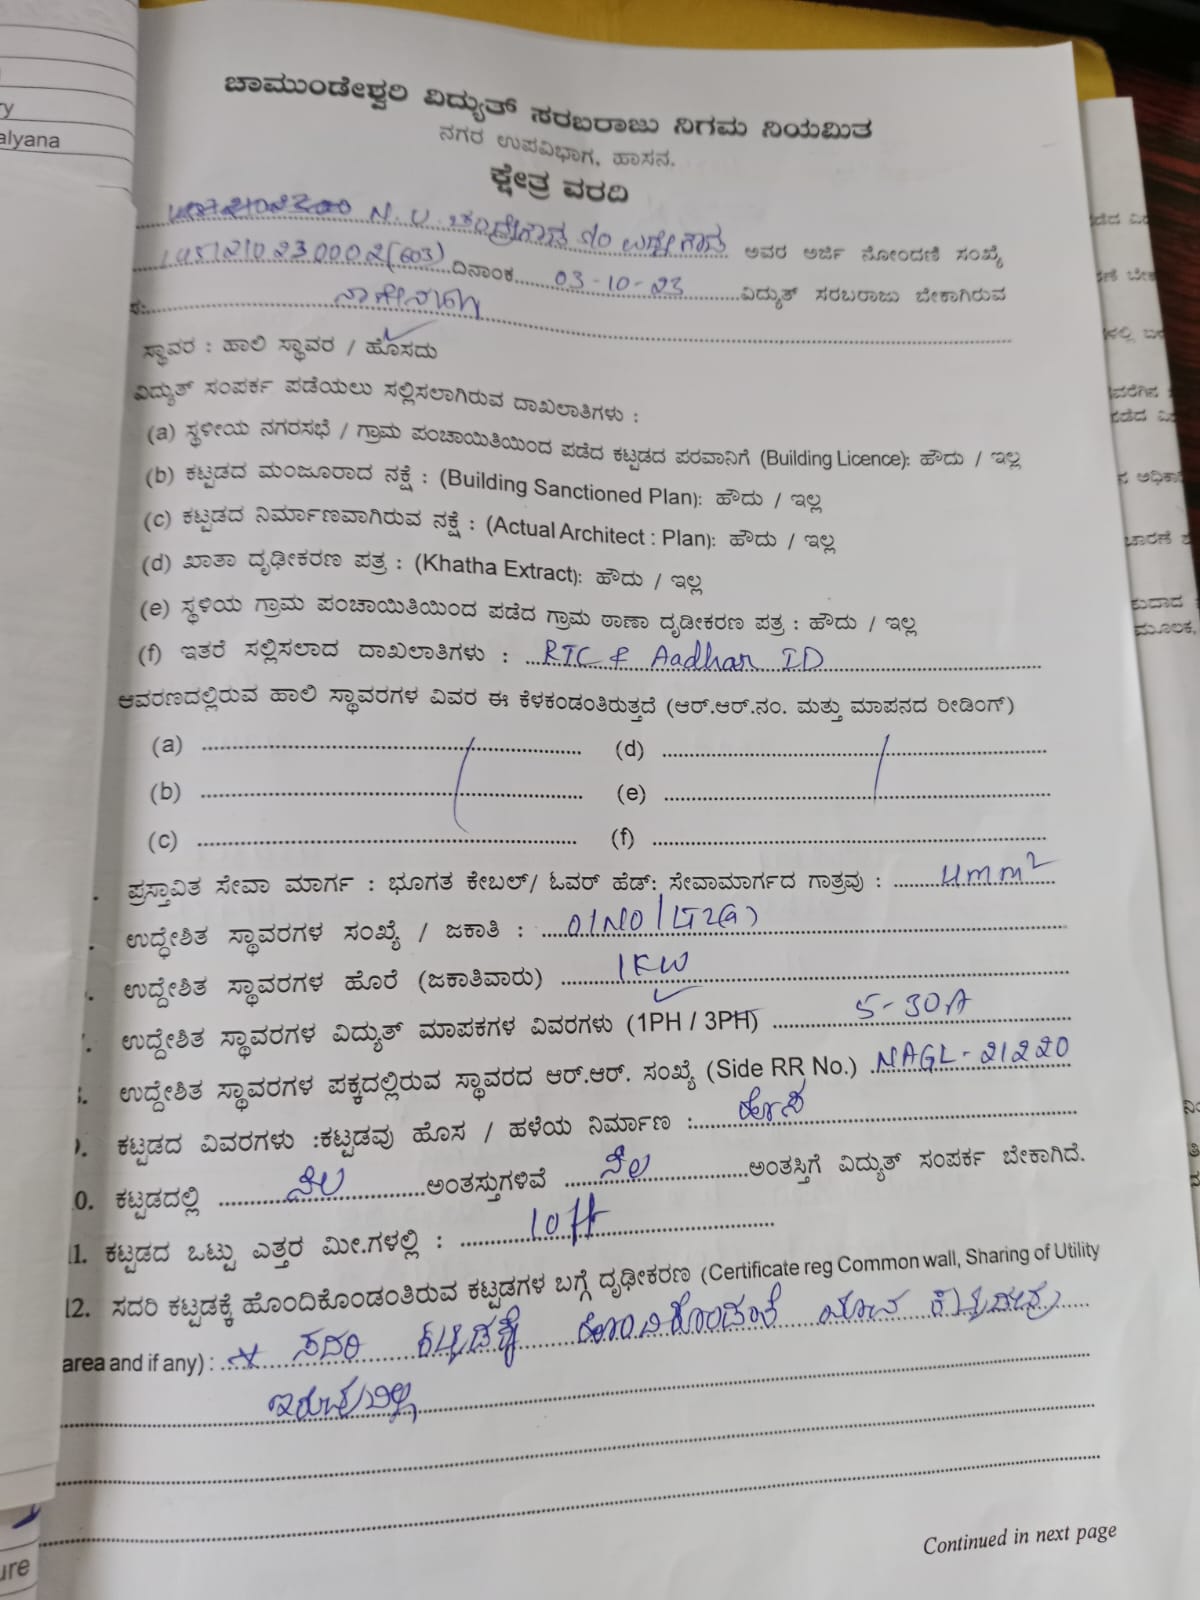 ry
alyana
ಚಾಮುಂಡೇಶ್ವರಿ ವಿದ್ಯುತ್ ಸರಬರಾಜು ನಿಗಮ ನಿಯಮಿತ
ನಗರ ಉಪವಿಭಾಗ, ಹಾಸನ.
ಕ್ಷೇತ್ರ ವರದಿ
N.U. ಚಂದ್ರೇಗೌಡ ಅವರ ಅರ್ಜಿ ನೋಂದಣಿ ಸಂಖ್ಯೆ
1451210230002(603) ದಿನಾಂಕ 03-10-23 ವಿದ್ಯುತ್ ಸರಬರಾಜು ಬೇಕಾಗಿರುವ
ಸ್ಥಾವರ : ಹಾಲಿ ಸ್ಥಾವರ / ಹೊಸದು
ವಿದ್ಯುತ್ ಸಂಪರ್ಕ ಪಡೆಯಲು ಸಲ್ಲಿಸಲಾಗಿರುವ ದಾಖಲಾತಿಗಳು :
(a) ಸ್ಥಳೀಯ ನಗರಸಭೆ / ಗ್ರಾಮ ಪಂಚಾಯಿತಿಯಿಂದ ಪಡೆದ ಕಟ್ಟಡದ ಪರವಾನಿಗೆ (Building Licence): ಹೌದು / ಇಲ್ಲ
(b) ಕಟ್ಟಡದ ಮಂಜೂರಾದ ನಕ್ಷೆ : (Building Sanctioned Plan): ಹೌದು / ಇಲ್ಲ
(c) ಕಟ್ಟಡದ ನಿರ್ಮಾಣವಾಗಿರುವ ನಕ್ಷೆ : (Actual Architect : Plan): ಹೌದು / ಇಲ್ಲ
(d) ಖಾತಾ ದೃಢೀಕರಣ ಪತ್ರ : (Khatha Extract): ಹೌದು / ಇಲ್ಲ
(e) ಸ್ಥಳಿಯ ಗ್ರಾಮ ಪಂಚಾಯಿತಿಯಿಂದ ಪಡೆದ ಗ್ರಾಮ ಠಾಣಾ ದೃಡೀಕರಣ ಪತ್ರ : ಹೌದು / ಇಲ್ಲ
(f) ಇತರೆ ಸಲ್ಲಿಸಲಾದ ದಾಖಲಾತಿಗಳು : RTC & Aadhar ID
ಆವರಣದಲ್ಲಿರುವ ಹಾಲಿ ಸ್ಥಾವರಗಳ ವಿವರ ಈ ಕೆಳಕಂಡಂತಿರುತ್ತದೆ (ಆರ್.ಆರ್.ನಂ. ಮತ್ತು ಮಾಪನದ ರೀಡಿಂಗ್)
(a) (d)
(b) (e)
(c) (f)
. ಪ್ರಸ್ತಾವಿತ ಸೇವಾ ಮಾರ್ಗ : ಭೂಗತ ಕೇಬಲ್/ ಓವರ್ ಹೆಡ್: ಸೇವಾಮಾರ್ಗದ ಗಾತ್ರವು : 4mm²
. ಉದ್ದೇಶಿತ ಸ್ಥಾವರಗಳ ಸಂಖ್ಯೆ / ಜಕಾತಿ : 01NO/LT2(a)
. ಉದ್ದೇಶಿತ ಸ್ಥಾವರಗಳ ಹೊರೆ (ಜಕಾತಿವಾರು) 1KW
. ಉದ್ದೇಶಿತ ಸ್ಥಾವರಗಳ ವಿದ್ಯುತ್ ಮಾಪಕಗಳ ವಿವರಗಳು (1PH / 3PH) 5-30A
. ಉದ್ದೇಶಿತ ಸ್ಥಾವರಗಳ ಪಕ್ಕದಲ್ಲಿರುವ ಸ್ಥಾವರದ ಆರ್.ಆರ್. ಸಂಖ್ಯೆ (Side RR No.) NAGL-21220
. ಕಟ್ಟಡದ ವಿವರಗಳು :ಕಟ್ಟಡವು ಹೊಸ / ಹಳೆಯ ನಿರ್ಮಾಣ : ಹೊಸ
0. ಕಟ್ಟಡದಲ್ಲಿ ನೆಲ ಅಂತಸ್ತುಗಳಿವೆ ನೆಲ ಅಂತಸ್ತಿಗೆ ವಿದ್ಯುತ್ ಸಂಪರ್ಕ ಬೇಕಾಗಿದೆ.
11. ಕಟ್ಟಡದ ಒಟ್ಟು ಎತ್ತರ ಮೀ.ಗಳಲ್ಲಿ : 10ft
12. ಸದರಿ ಕಟ್ಟಡಕ್ಕೆ ಹೊಂದಿಕೊಂಡಂತಿರುವ ಕಟ್ಟಡಗಳ ಬಗ್ಗೆ ದೃಢೀಕರಣ (Certificate reg Common wall, Sharing of Utility
area and if any) : ಸದರಿ ಕಟ್ಟಡಕ್ಕೆ ಹೊಂದಿಕೊಂಡಂತೆ ಯಾವ ಕಟ್ಟಡವೂ
ಇರುವುದಿಲ್ಲ
Continued in next page
ure